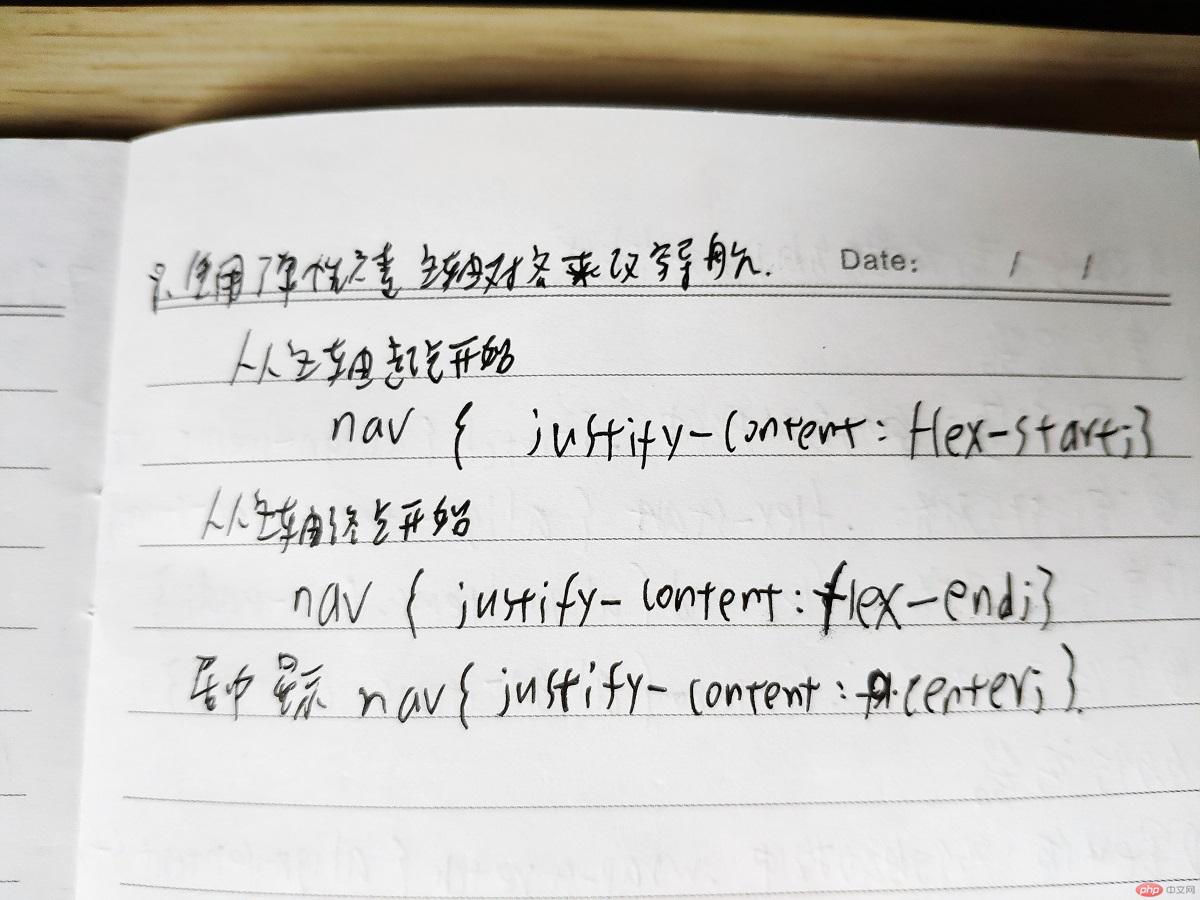 8.使用弹性元素主轴对齐来改写导航. Date: / /
从主轴起点开始
nav { justify-content: flex-start;}
从主轴终点开始
nav { justify-content: flex-end;}
居中显示 nav{ justify-content: center; }
php 中文网